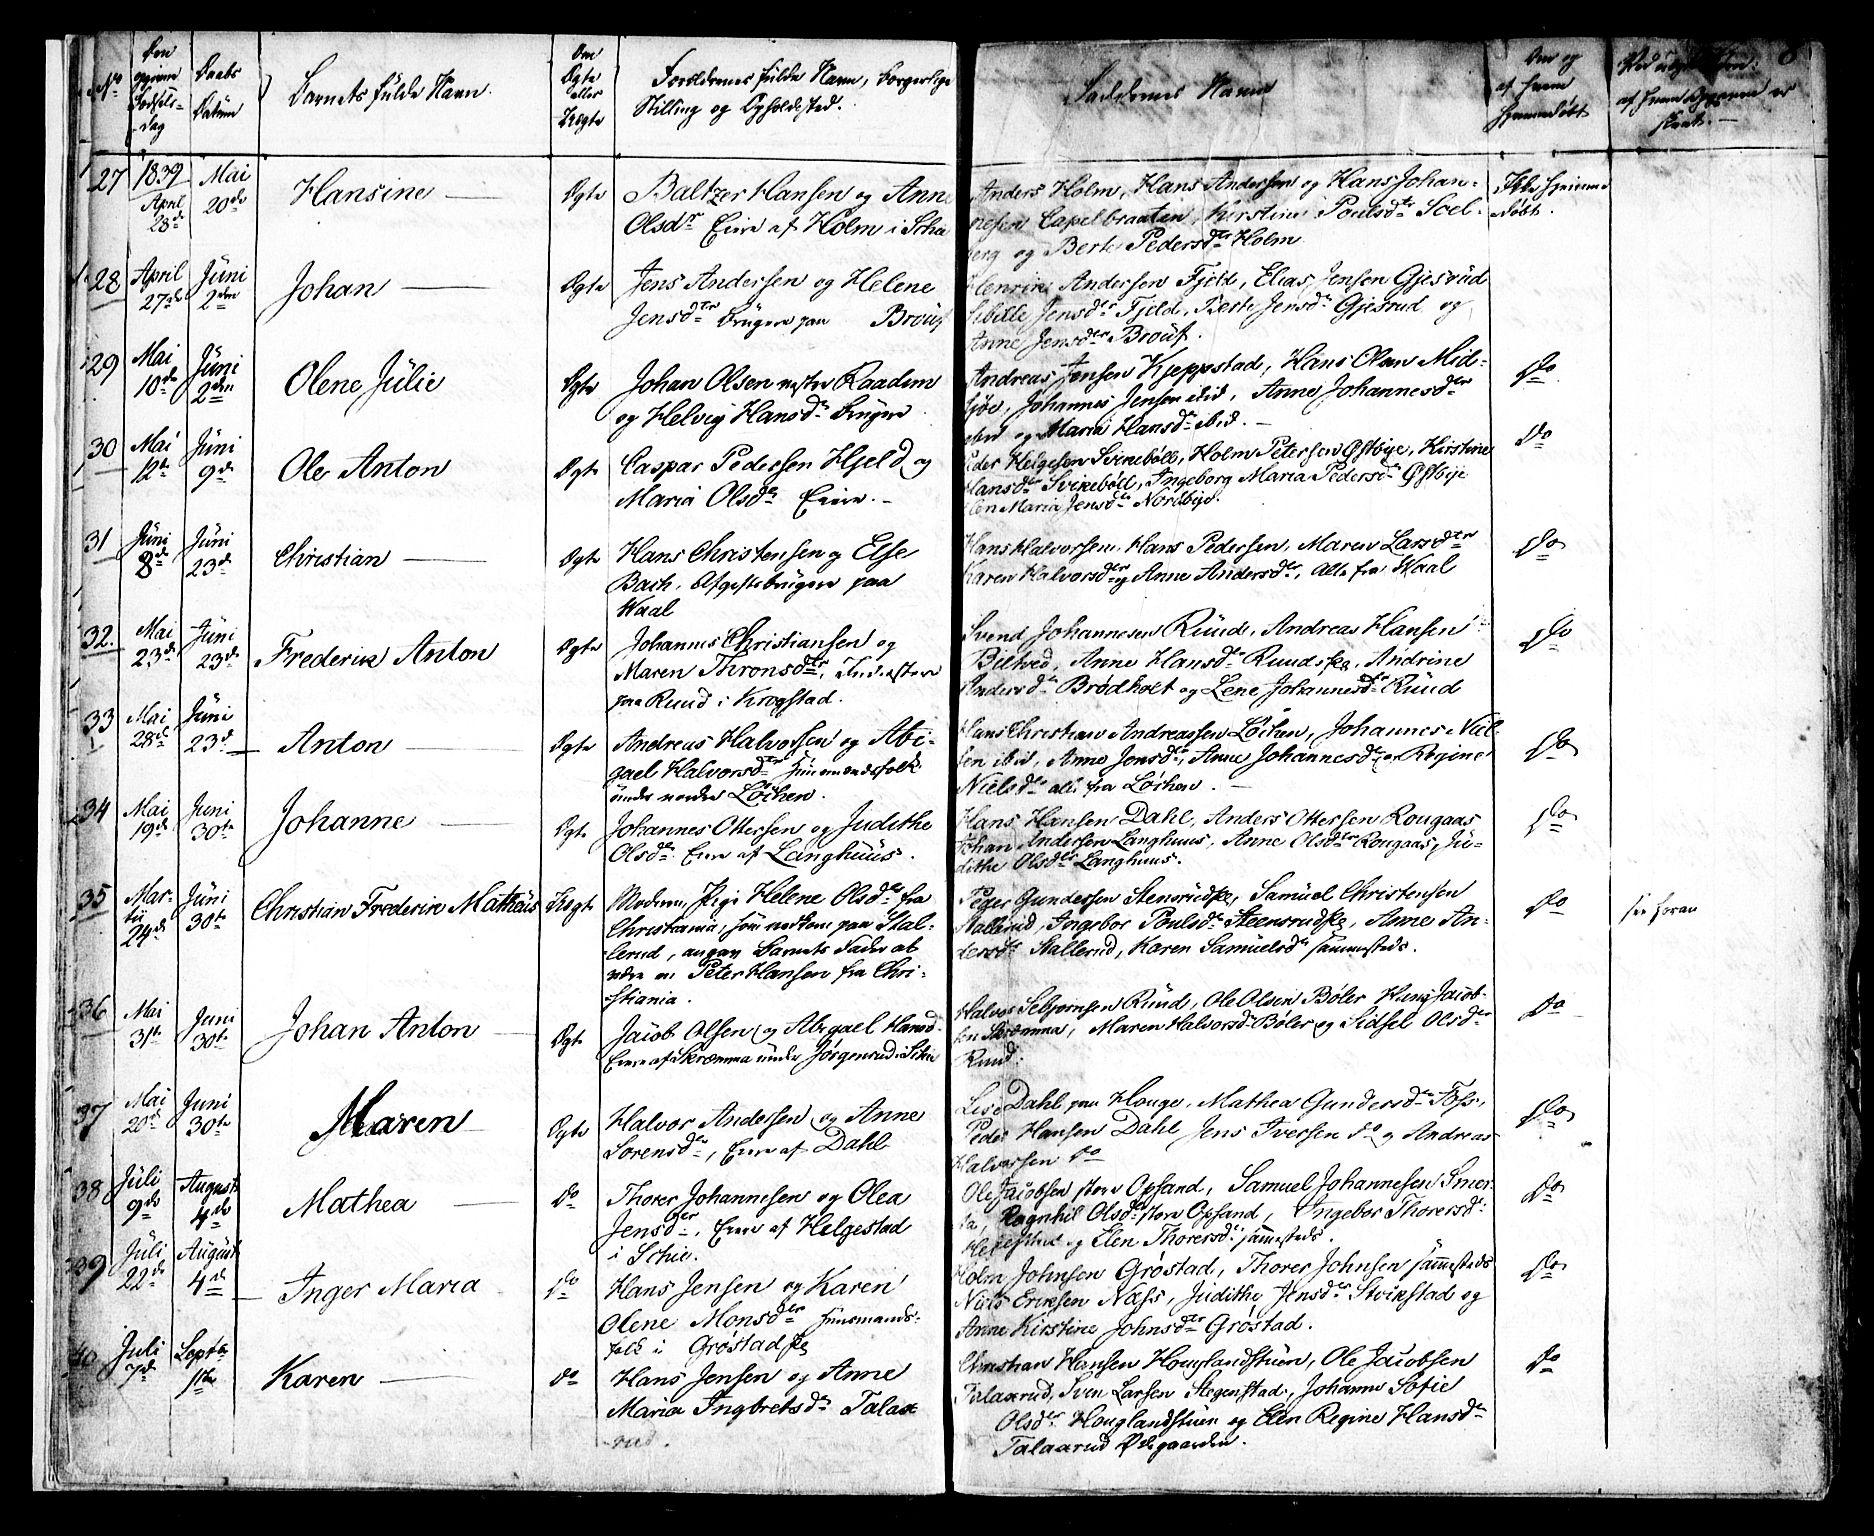 No
Den
opgivne
Fødsels-
dag
Daabs
Datum
Barnets fulde Navn.
Om
Ægte
eller
Uægte
Forældrenes fulde Navn, borgerlige
Stilling og Opholdsted.
Faddernes Navne
Om og
af hvem
hjemmedøbt
27
1839
April
28de
Mai
20de
Hansine
Ægte
Baltzer Hansen og Anne
Olsdr Eiere af Holm i Schie
Anders Holm, Hans Andersen og Hans Johan-
nesen Capelbraaten, Kirstine Poulsdtr Soel-
berg og Berte Pedersdtr Holm
Ikke hjemme
døbt.
28
April
27de
Juni
2den
Johan
Ægte
Jens Andersen og Helene
Jensdtr Brugere paa Brouf
Henrik Andersen Fjeld, Elias Jensen Gjesrud
Sibille Jensdtr Fjeld, Berte Jensdr Gjesrud og
Anne Jensdtr Brouf.
29
Mai
10de
Juni
2den
Olene Julie
Ægte
Johan Olsen nestre Raadim
og Helvig Hansdr Brugere
Andreas Jensen Kjeppstad, Hans Olsen Mid-
sjøe, Johannes Jensen ibid, Anne Johannesdtr
ibid og Maria Hansdr ibid.
Do
30
Mai
12te
Juni
9de
Ole Anton
Ægte
Caspar Pedersen Kjeld og
Maria Olsdtr Eiere.
Peder Helgesen Svikebøll, Holm Petersen Østbye, Kirstine
Hansdtr Svikebøll, Ingeborg Maria Pedersdr Østbye
Elen Maria Jensdtr Nordbye.
Do
31
Juni
8de
Juni
23de
Christian
Ægte
Hans Christensen og Else
Bach. Afgiftsbrugere paa
Waal
Hans Halvorsen, Hans Pedersen, Maren Larsdtr
Karen Halvorsdtr og Anne Andersdtr, alle fra Waal
Do
32.
Mai
23de
Juni
23de
Frederik Anton
Ægte
Johannes Christiansen og
Maren Thronsdtr, Inderster
paa Ruud i Krogstad.
Svend Johannesen Ruud, Andreas Hansen
Biltved, Anne Hansdr Ruudske, Andrine
Andersdr Brødholt og Lene Johannesdr Ruud
Do
33
Mai
28de
Juni
23de
Anton
Ægte
Andreas Halvorsen og Abi-
gael Halvorsdtr Huusmandsfolk
under nordre Løchen.
Hans Christian Andreassen Løchen, Johannes Niel-
sen ibid, Anne Jonsdr, Anne Johannesdr og Regine
Nielsdr alle fra Løchen.
Do
34
Mai
19de
Juni
30te
Johanne
Ægte
Johannes Ottersen og Judithe
Olsdtr Eiere af Langhuus.
Hans Hansen Dahl, Anders Ottersen Rougaas
Johan Andersen Langhuus, Anne Olsdtr Rougaas, Ju-
dithe Olsdtr Langhuus.
Do
35
Mar-
tii
24de
Juni
30te
Christian Frederik Mathæus
Uægte
Moderen, Pige Helene Olsdtr fra
Christiania, som nu kom paa Stal-
lerud, angav Barnets Fader at
være en Peter Hansen fra Chri-
stiania.
Peder Gundersen Stensrudske, Samuel Christensen
Stallerud, Ingebor Poulsdr Steensrudske, Anne An-
dersdtr Stallerud, Karen Samuelsdr sammesteds.
Do
see foran
36
Mai
31te
Juni
30te
Johan Anton
Ægte
Jacob Olsen og Abigael Hansd.
Eiere af Skræmma under Jørgenrud i Schie
Halvor Sebjørnsen Ruud, Ole Olsen Bøler Hans Jacob-
sen Skræmma, Maren Halvorsdr Bøler og Sidsel Olsdtr
Ruud.
Do
37
Mai
20de
Juni
30te
Maren
Ægte
Halvor Andersen og Anne
Sorensdtr, Eiere af Dahl
Lise Dahl paa Houge, Mathea Gundersdr Foss,
Peder Hansen Dahl Jens Iversen do og Andreas
Halvorsen do
Do
38
Juli
9de
August
4de
Mathea
do
Thorer Johannesen og Olea
Jensdtr, Eiere af Helgestad
i Schie.
Ole Jacobsen store Opsand, Samuel Johannesen Smer-
ta, Ragnhil Olsdr store Opsand, Ingebor Thorersdr
Helgestad og Elen Thorersdr sammesteds.
Do
39
Juli
22de
August
4de
Inger Maria
do
Hans Jensen og Karen
Olene Monsdtr Huusmands-
folk i Grøstadske
Holm Johnsen Grøstad, Thorer Johnsen sammesteds
Niels Eriksen Næss, Judithe Jensdtr Stvikstad og
Anne Kirstine Johnsdtr Grøstad.
Do
40
Juli
7de
Septbr
1ste
Karen
do
Hans Jensen og Anne
Maria Ingbretsdr Talaa
rud.
Christian Hansen Houglandstuen, Ole Jacobsen
Talaarud, Sven Larsen Stegenstad, Johanne Sofie
Olsdtr Houglandstuen og Elen Regine Hansdtr
Talaarud Ødegaarden.
Do